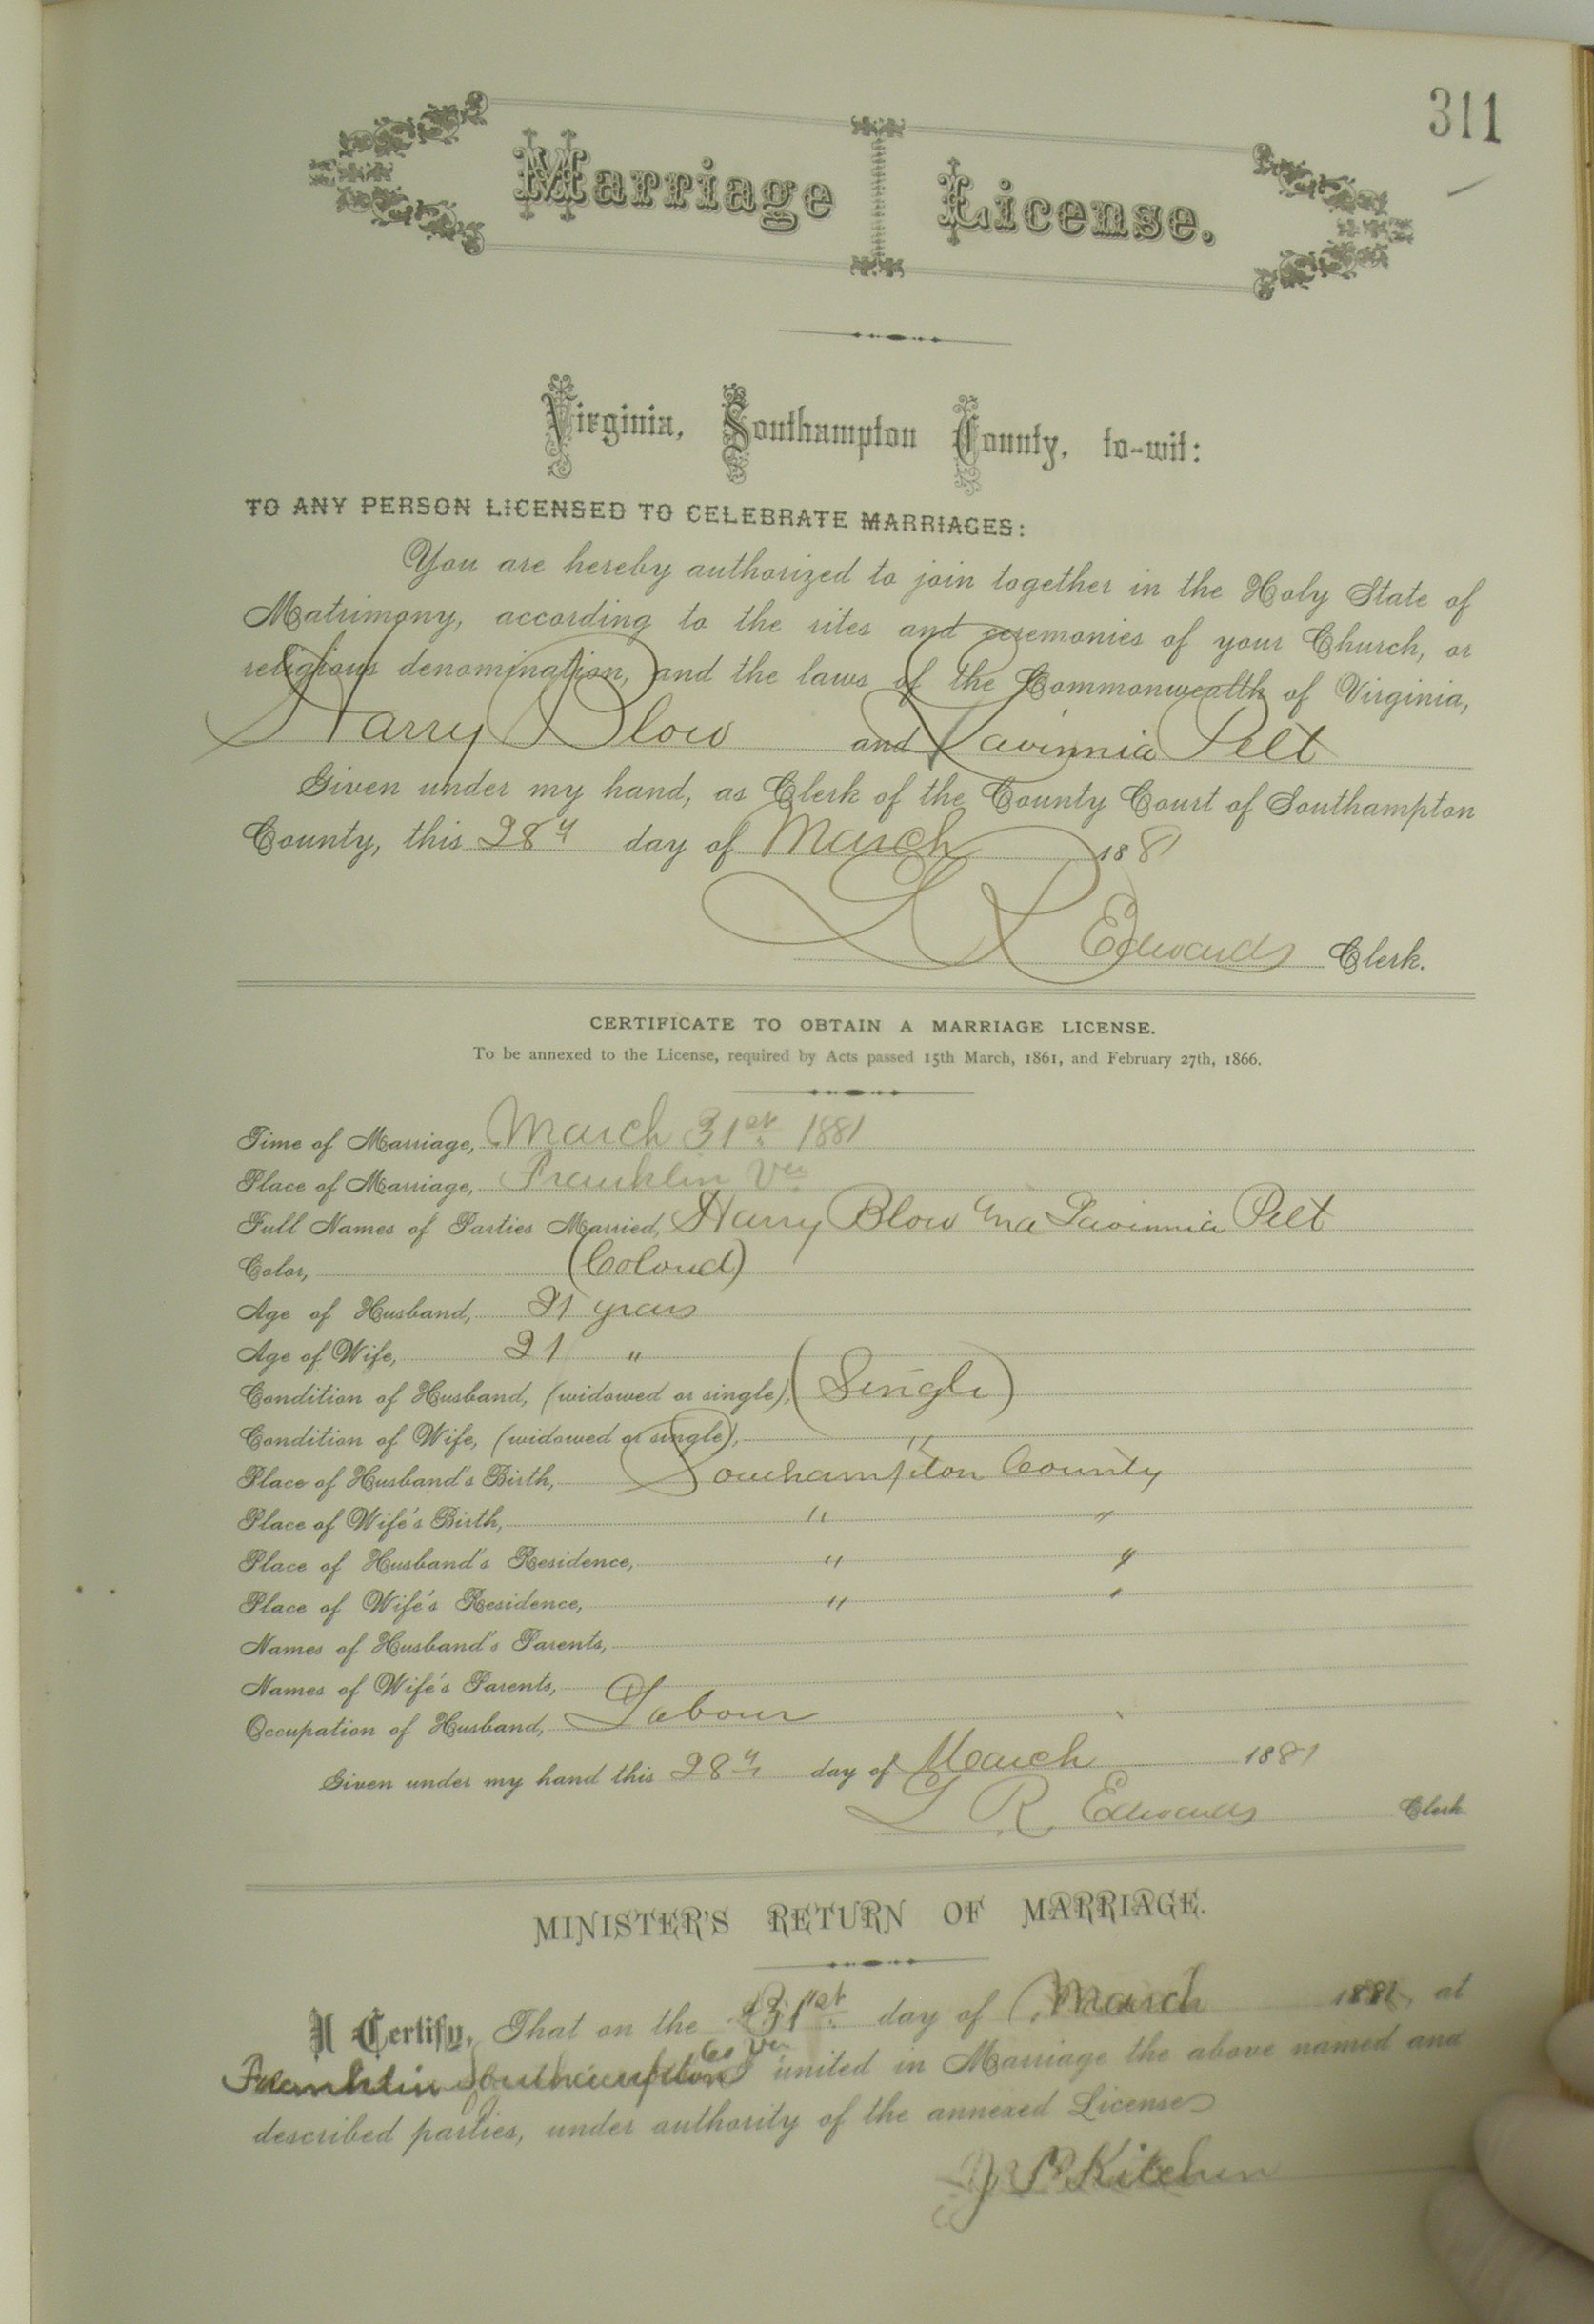 311
Marriage License.
Virginia, Southampton County, to-wit:
TO ANY PERSON LICENSED TO CELEBRATE MARRIAGES:
You are hereby authorized to join together in the Holy State of
Matrimony, according to the rites and ceremonies of your Church, or
religious denomination, and the laws of the Commonwealth of Virginia,
Harry Blow and Lavinnia Pelt
Given under my hand, as Clerk of the County Court of Southampton
County, this 28 day of March 1881
L R Edwards Clerk.
CERTIFICATE TO OBTAIN A MARRIAGE LICENSE.
To be annexed to the License, required by Acts passed 15th March, 1861, and February 27th, 1866.
Time of Marriage, March 31st 1881
Place of Marriage, Franklin Va
Full Names of Parties Married, Harry Blow and Lavinnia Pelt
Color, (Colored)
Age of Husband, 21 years
Age of Wife, 21 "
Condition of Husband, (widowed or single), (Single)
Condition of Wife, (widowed or single), "
Place of Husband's Birth, Southampton County
Place of Wife's Birth, " "
Place of Husband's Residence, " "
Place of Wife's Residence, " "
Names of Husband's Parents,
Names of Wife's Parents,
Occupation of Husband, Labour
Given under my hand this 28 day of March 1881
L R Edwards Clerk
MINISTER'S RETURN OF MARRIAGE.
I Certify, That on the 31st day of March 1881, at
Franklin Southampton Co Va I united in Marriage the above named and
described parties, under authority of the annexed License
Kitchen